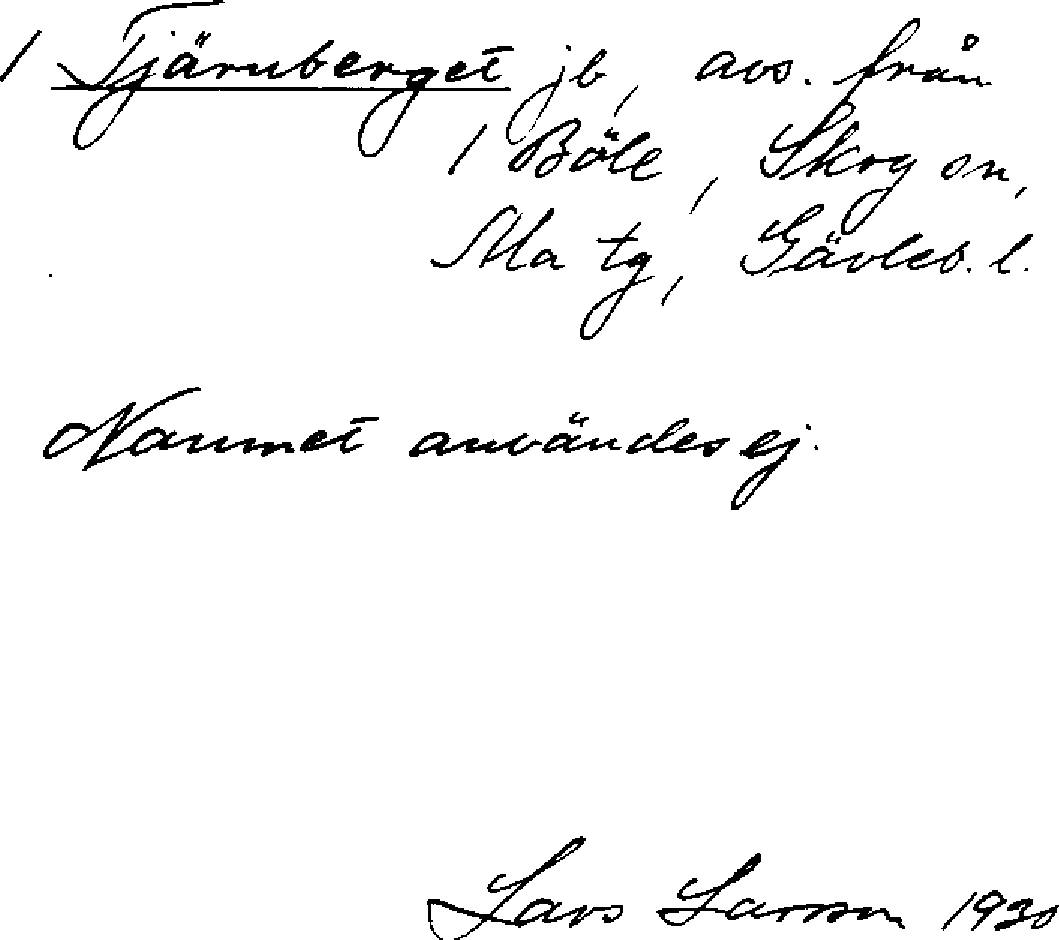 1 Tjärnberget jb, avs. från
1 Böle, Skog sn,
Ma tg, Gävleb. l.
Namnet användes ej.
Lars Larsson 1930